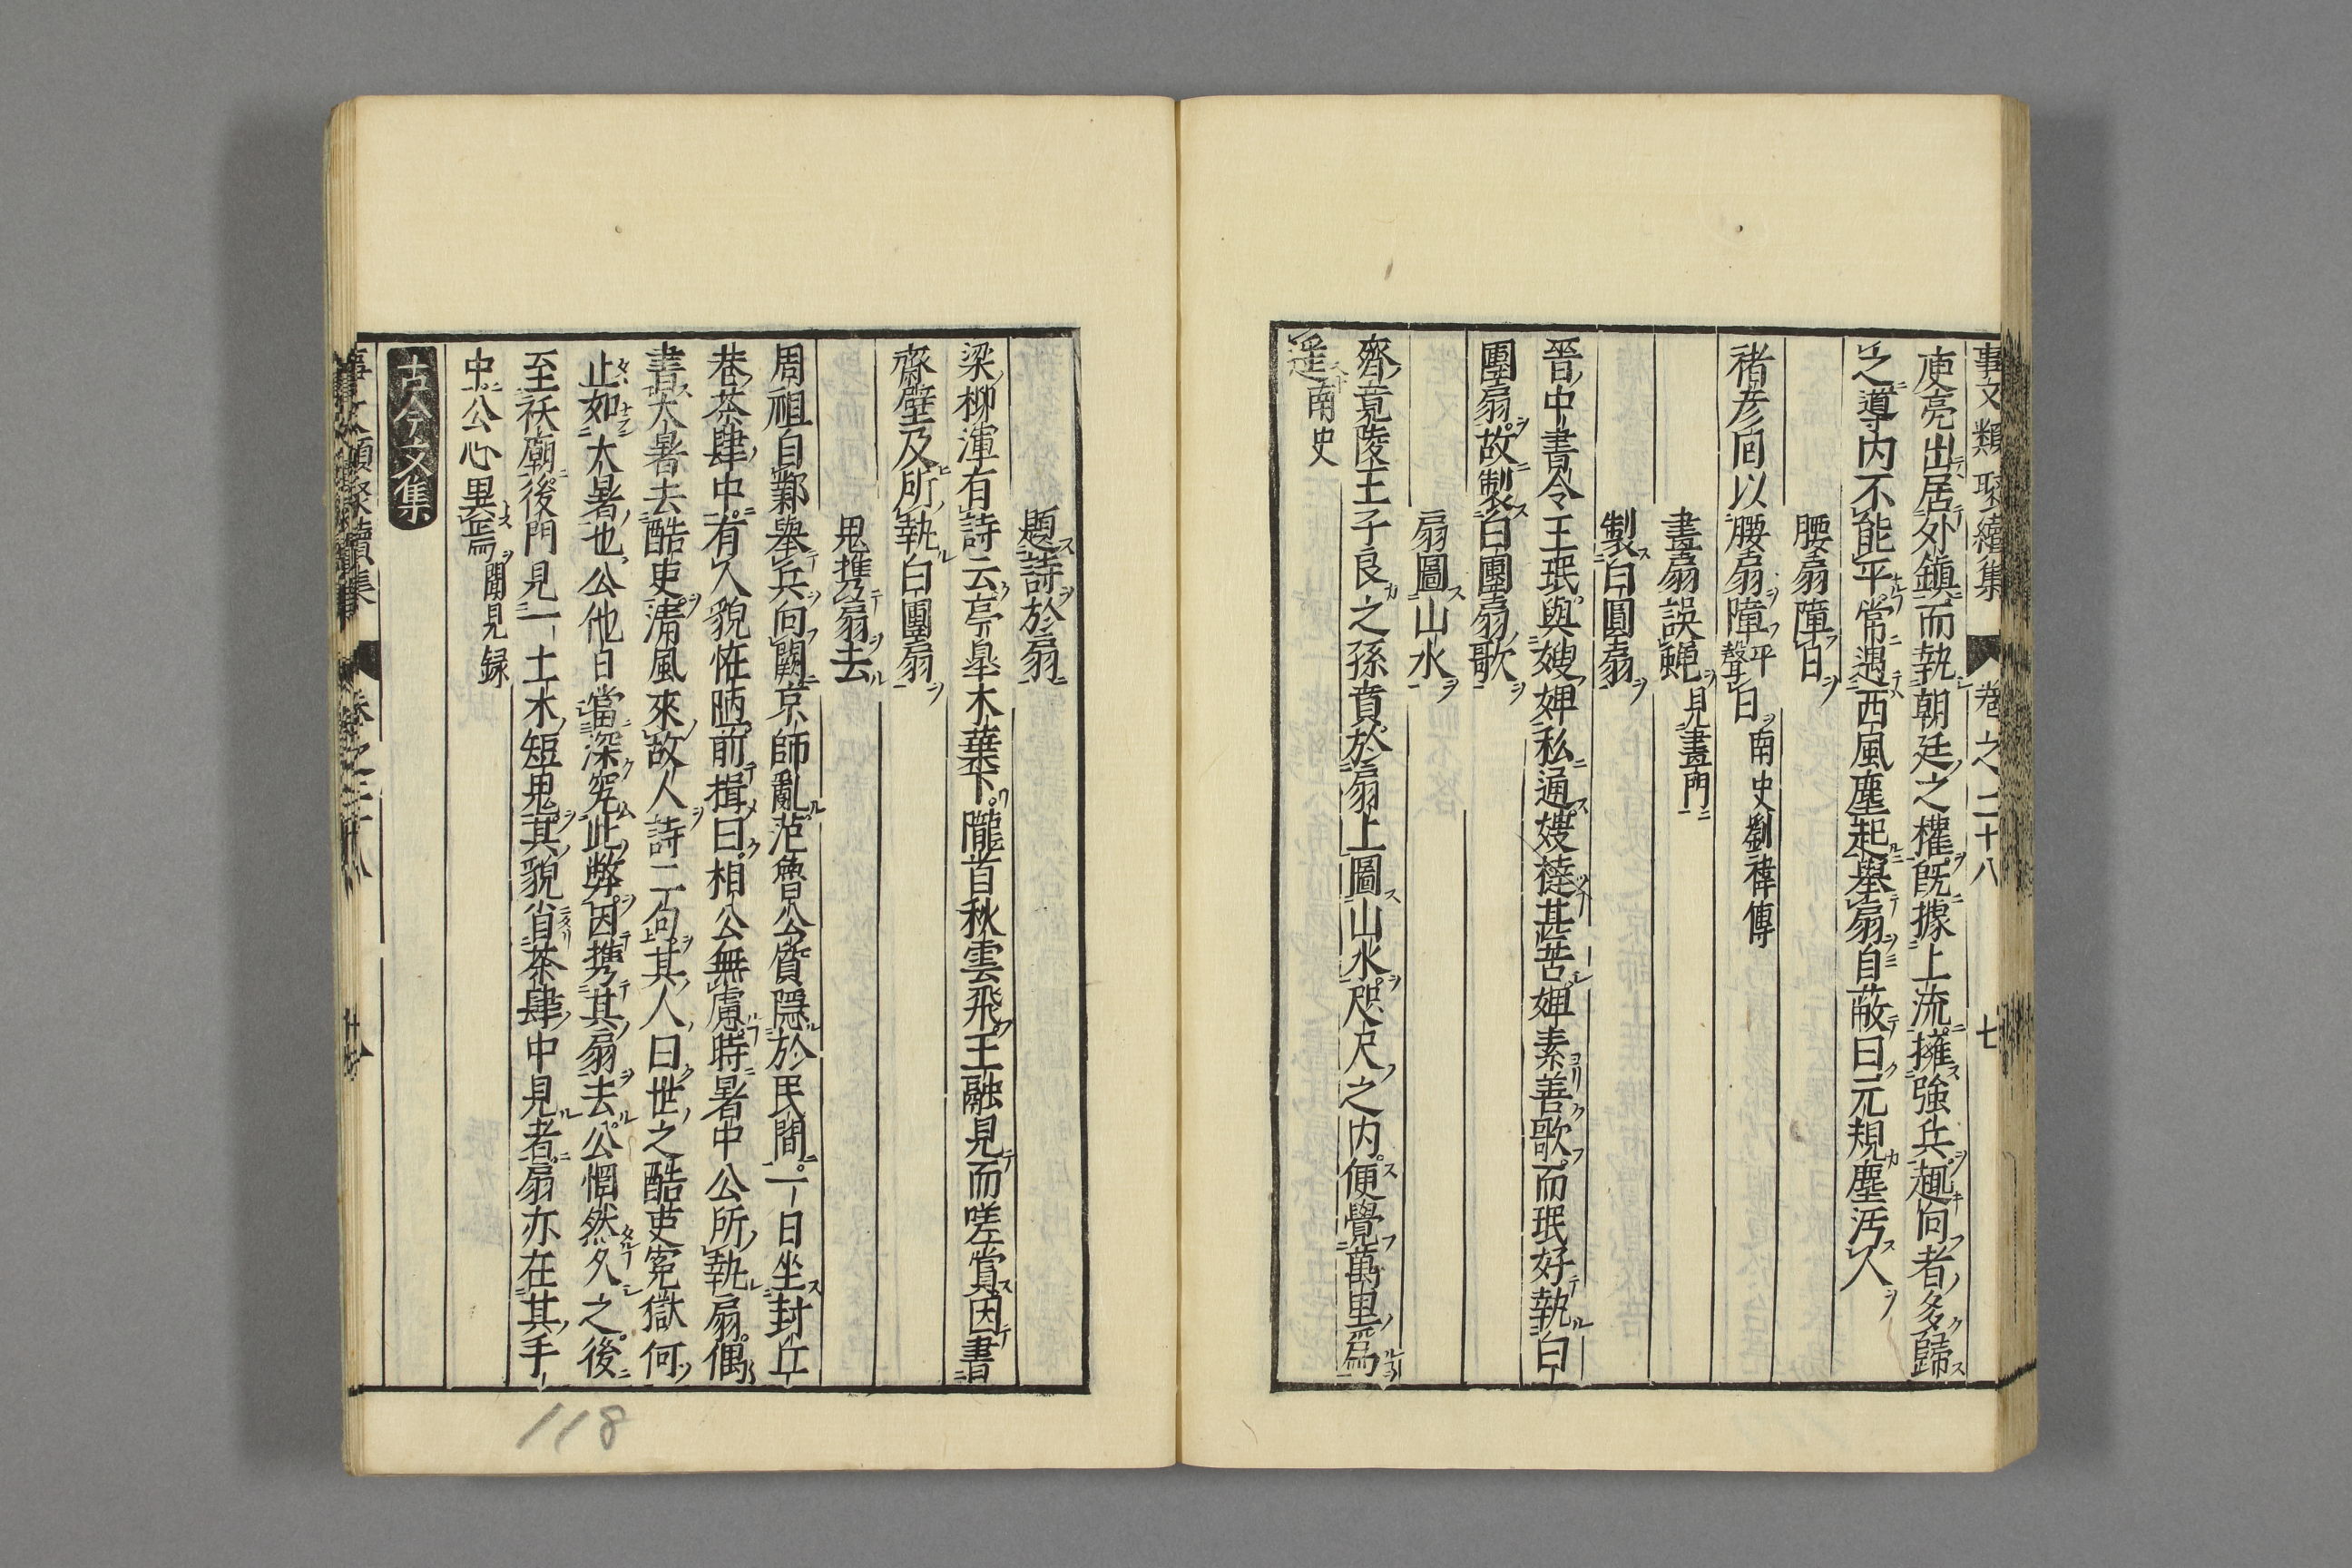 事文類聚續集 卷之二十八 七
庾亮出居外鎮而執朝廷之權既據上流擁強兵趣向者多歸
之導内不能平常遇西風塵起舉扇自蔽曰元規塵汚人
腰扇障日
褚彦回以腰扇障平聲日南史劉祥傳
畫扇誤蠅見畫門
製白團扇
晉中書令王珉與嫂婢私通嫂撻甚苦婢素善歌而珉好執白
團扇故製白團扇歌
扇圖山水
齊竟陵王子良之孫賁於扇上圖山水咫尺之内便覺萬里爲
遥南史
題詩於扇
梁柳渾有詩云亭皐木葉下隴首秋雲飛王融見而嗟賞因書
齋壁及所執白團扇
鬼携扇去
周祖自鄴舉兵向闕京師亂范魯公質隱於民間一日坐封丘
巷茶肆中有人貌恠陋前揖曰相公無慮時暑中公所執扇偶
書大暑去酷吏清風來故人詩二句其人曰世之酷吏寃獄何
止如大暑也公他日當深究此弊因携其扇去公惘然久之後
至祅廟後門見一土木短鬼其貌肖茶肆中見者扇亦在其手
中公心異焉聞見録
古今文集
118